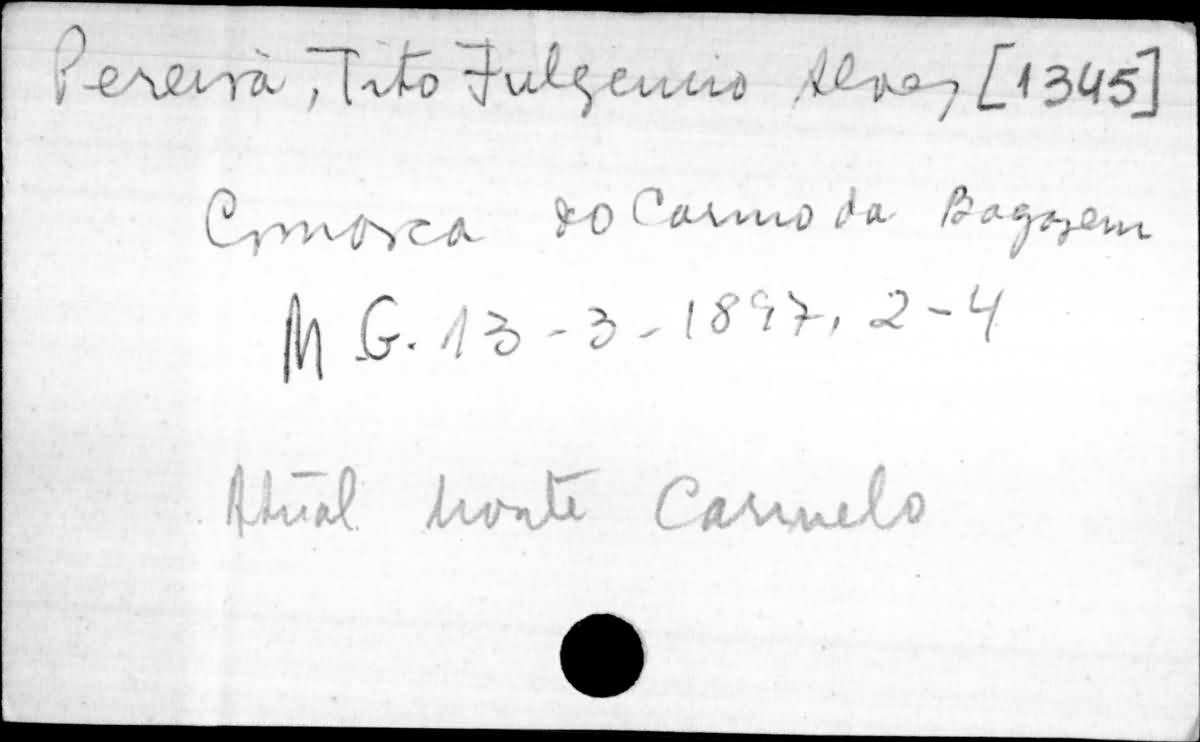 Pereira, Tito Fulgencio Alves [1345]
Comarca do Carmo da Bagagem
M G. 13-3-1897, 2-4
Atual Monte Carmelo